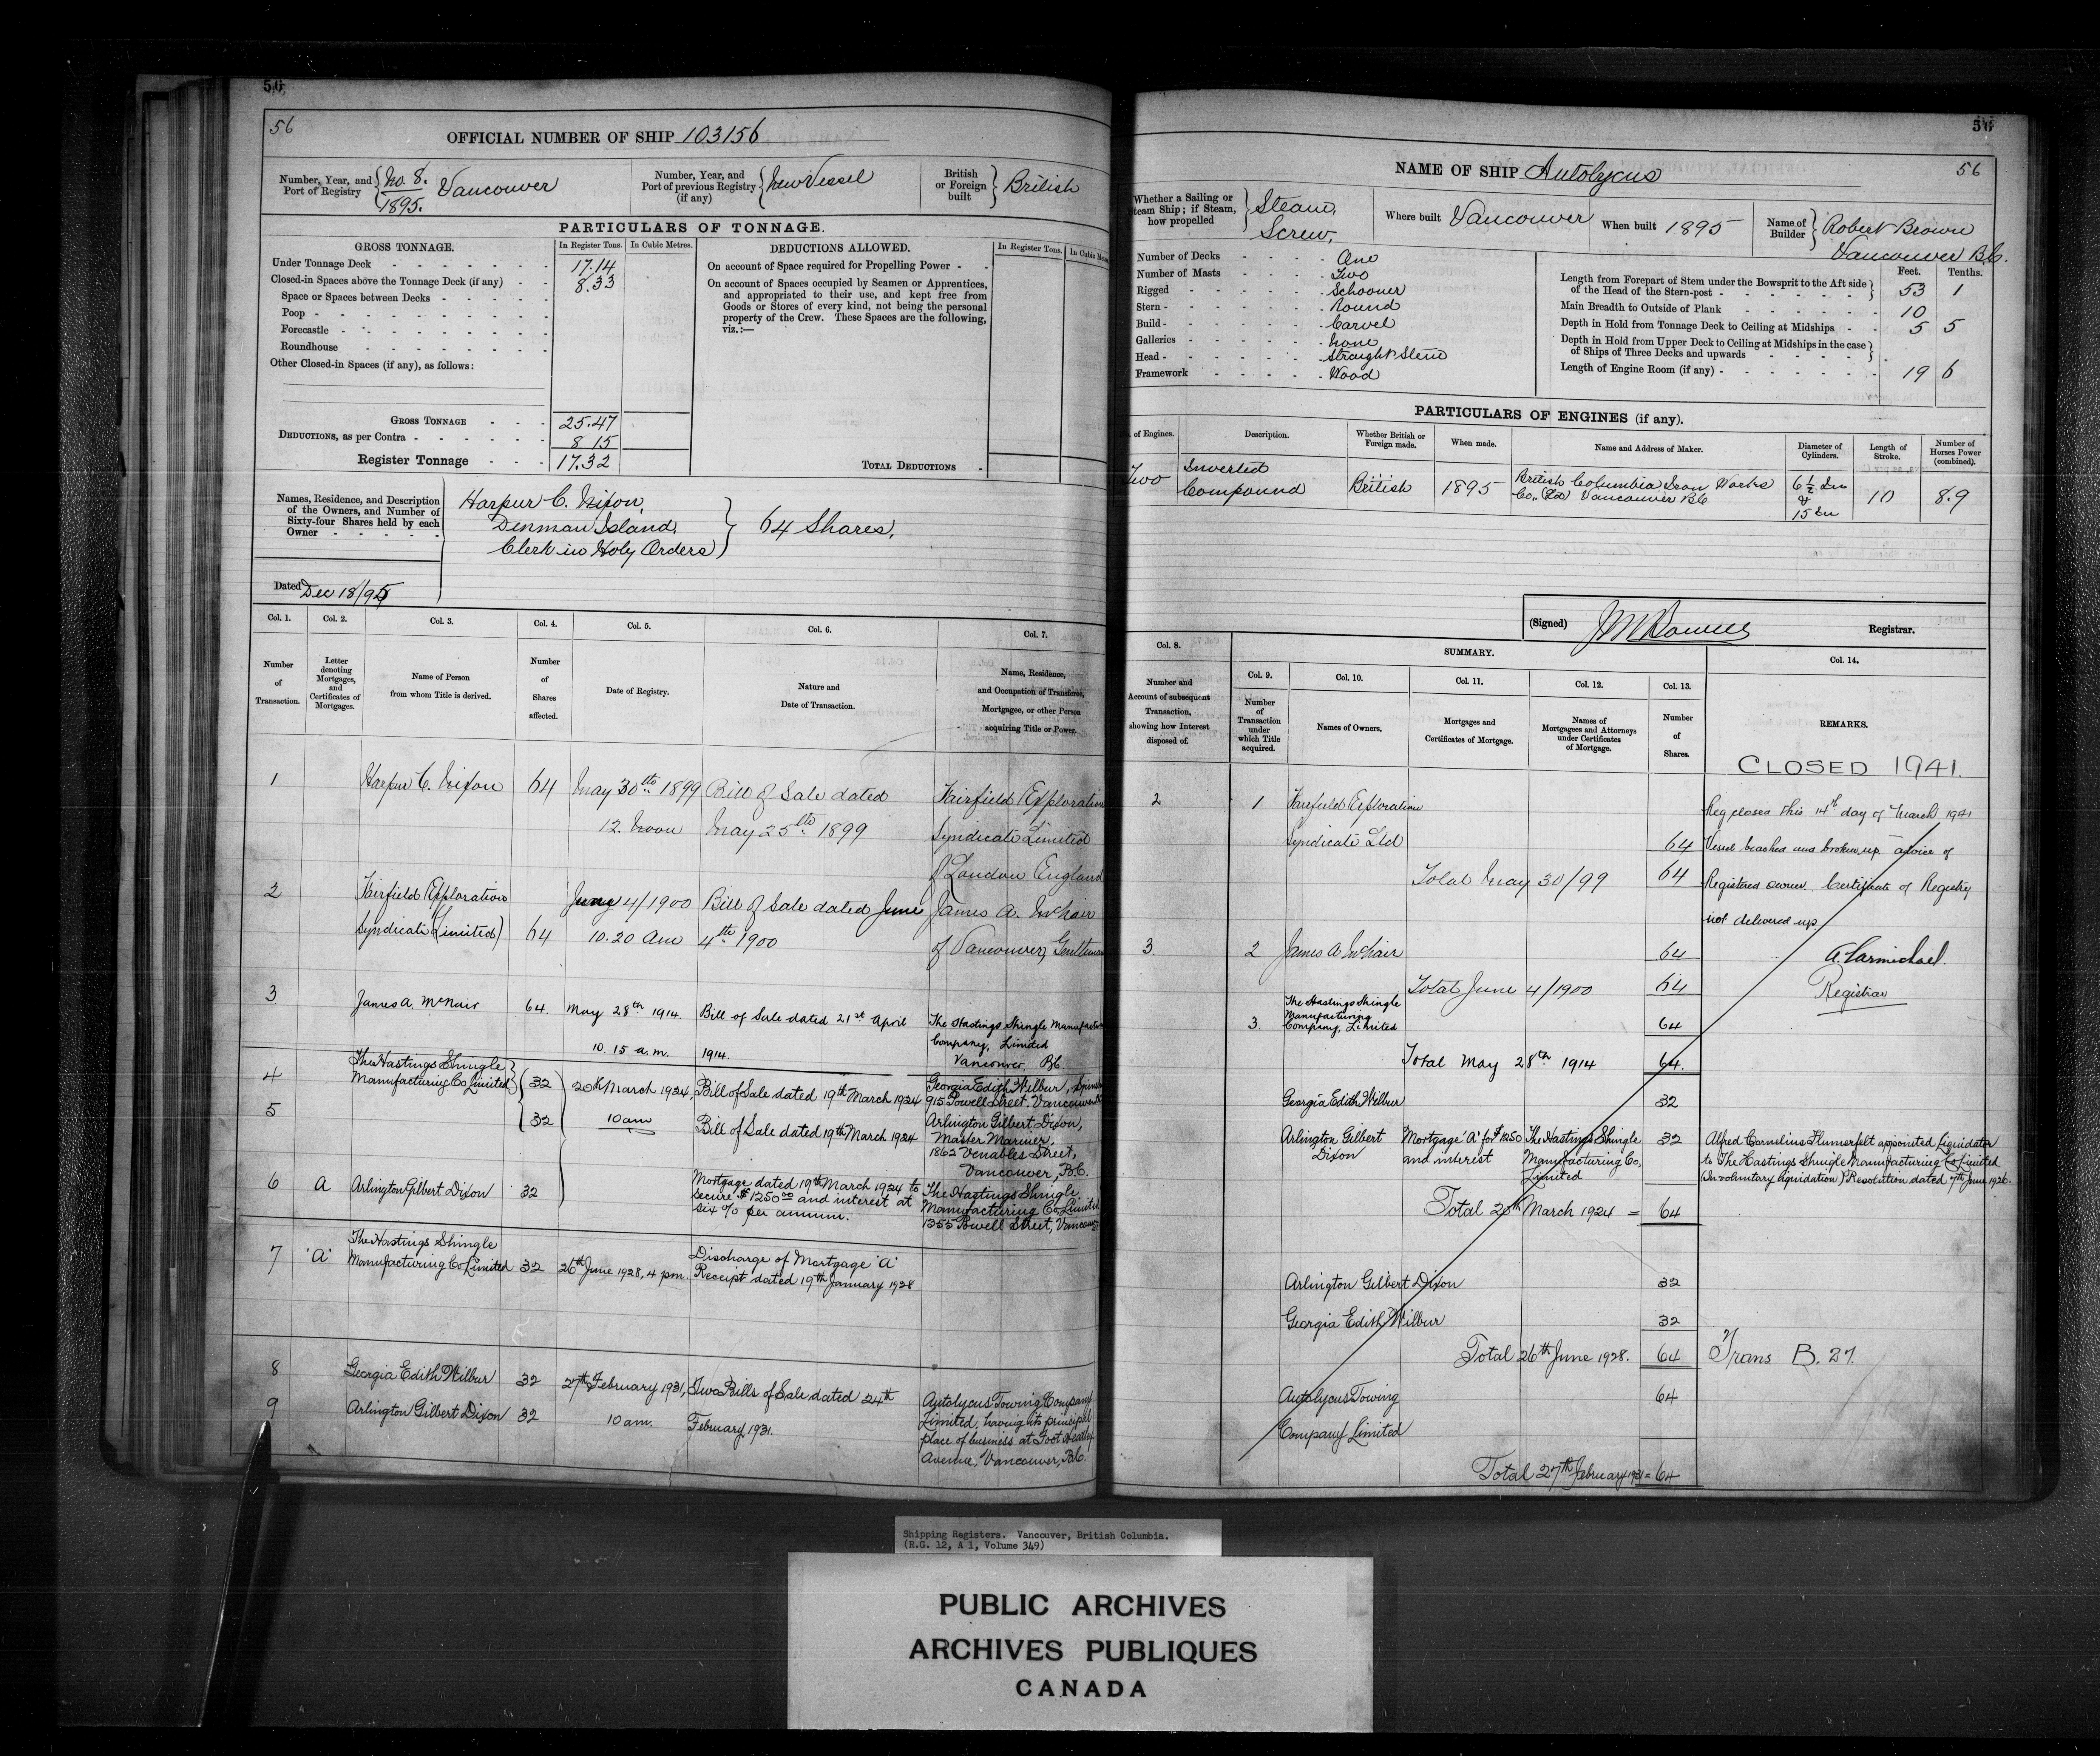 50
56
OFFICIAL NUMBER OF SHIP 103156
Number, Year, and
Port of Registry
No. 8.
1895.
Vancouver
Number, Year, and
Port of previous Registry
(if any)
New Vessel
British
or Foreign
built
British
PARTICULARS OF TONNAGE.
GROSS TONNAGE.
In Register Tons.
In Cubic Metres.
Under Tonnage Deck 17.14
Closed-in Spaces above the Tonnage Deck (if any) 8.33
Space or Spaces between Decks
Poop
Forecastle
Roundhouse
Other Closed-in Spaces (if any), as follows:
GROSS TONNAGE 25.47
DEDUCTIONS, as per Contra 8 15
Register Tonnage 17.32
DEDUCTIONS ALLOWED.
In Register Tons.
In Cubic
On account of Space required for Propelling Power
On account of Spaces occupied by Seamen or Apprentices,
and appropriated to their use, and kept free from
Goods or Stores of every kind, not being the personal
property of the Crew. These Spaces are the following,
viz.:—
TOTAL DEDUCTIONS
Names, Residence, and Description
of the Owners, and Number of
Sixty-four Shares held by each
Owner
Harpur C. Nixon,
Denman Island,
Clerk in Holy Orders
64 Shares.
Dated Dec 18/95
Col. 1.
Number
of
Transaction.
Col. 2.
Letter
denoting
Mortgages,
and
Certificates of
Mortgages.
Col. 3.
Name of Person
from whom Title is derived.
Col. 4.
Number
of
Shares
affected.
Col. 5.
Date of Registry.
Col. 6.
Nature and
Date of Transaction.
Col. 7.
Name, Residence,
and Occupation of Transferee,
Mortgagee, or other Person
acquiring Title or Power.
1 Harpur C. Nixon 64 May 30th 1899 Bill of Sale dated Fairfield Exploration
12. Noon May 25th 1899 Syndicate Limited
of London England
2 Fairfield Exploration June 4/1900 Bill of Sale dated June James A. McNair
Syndicate (Limited) 64 10.20 Am 4th 1900 of Vancouver, Gentleman
3 James A. McNair 64. May 28th 1914. Bill of Sale dated 21st April The Hastings Shingle
10.15 a.m. 1914. Company, Limited
Vancouver, B.C.
4 The Hastings Shingle
Manufacturing Co Limited 32 20th March 1924, Bill of Sale dated 19th March 1924 Georgia Edith Wilbur,
915 Powell Street, Vancouver
5 32 10 am Bill of Sale dated 19th March 1924 Arlington Gilbert Dixon,
Master Mariner,
1862 Venables Street,
Vancouver, B.C.
6 A Arlington Gilbert Dixon 32 Mortgage dated 19th March 1924 to
secure $1250.00 and interest at
six % per annum.
The Hastings Shingle
Manufacturing Co, Limited
1355 Powell Street,
7 "A" The Hastings Shingle
Manufacturing Co Limited 32 26th June 1928, 4 pm. Discharge of Mortgage "A"
Receipt dated 19th January 1928
8 Georgia Edith Wilbur 32 27th February 1931, Two Bills of Sale dated 24th Autolycus Towing Company
9 Arlington Gilbert Dixon 32 10 am. February 1931. Limited, having its principal
place of business at Foot
Avenue, Vancouver, B.C.
56
NAME OF SHIP Autolycus 56
Whether a Sailing or
Steam Ship; if Steam,
how propelled
Steam,
Screw,
Where built Vancouver
When built 1895
Name of
Builder
Robert Brown
Vancouver B.C.
Number of Decks One
Number of Masts Two
Rigged Schooner
Stern Round
Build Carvel
Galleries None
Head Straight Stem
Framework Wood
Feet. Tenths.
Length from Forepart of Stem under the Bowsprit to the Aft side
of the Head of the Stern-post 53 1
Main Breadth to Outside of Plank 10
Depth in Hold from Tonnage Deck to Ceiling at Midships 5 5
Depth in Hold from Upper Deck to Ceiling at Midships in the case
of Ships of Three Decks and upwards
Length of Engine Room (if any) 19 6
PARTICULARS OF ENGINES (if any).
of Engines.
Description.
Whether British or
Foreign made.
When made.
Name and Address of Maker.
Diameter of
Cylinders.
Length of
Stroke.
Number of
Horses Power
(combined).
Two
Inverted
Compound
British
1895
British Columbia Iron Works
Co., (Ld) Vancouver B.C.
6 1/2 In
&
15 In
10
8.9
(Signed)
Registrar.
Col. 8.
Number and
Account of subsequent
Transaction,
showing how Interest
disposed of.
SUMMARY.
Col. 9.
Number
of
Transaction
under
which Title
acquired.
Col. 10.
Names of Owners.
Col. 11.
Mortgages and
Certificates of Mortgage.
Col. 12.
Names of
Mortgagees and Attorneys
under Certificates
of Mortgage.
Col. 13.
Number
of
Shares.
Col. 14.
REMARKS.
CLOSED 1941.
2 1 Fairfield Exploration
Syndicate Ltd 64
Total May 30/99 64
3. 2 James A McNair 64
Total June 4/1900 64
3. The Hastings Shingle
Manufacturing
Company, Limited 64
Total May 28th 1914 64.
Georgia Edith Wilbur 32
Arlington Gilbert
Dixon
Mortgage "A" for $1250
and interest
The Hastings Shingle
Manufacturing Co,
Limited
32
Total 20th March 1924 = 64
Arlington Gilbert Dixon 32
Georgia Edith Wilbur 32
Total 26th June 1928. 64
Autolycus Towing 64
Company Limited
Total 27th February 1931 = 64
Reg closed this 14th day of March 1941
Vessel beached and broken up advice of
Registered owner. Certificate of Registry
not delivered up
A. Carmichael.
Registrar
Alfred Cornelius Flumerfelt appointed liquidator
to The Hastings Shingle Manufacturing Co Limited
(In voluntary liquidation) Resolution dated 7th June 1926.
Trans B. 27.
Shipping Registers. Vancouver, British Columbia.
(R.G. 12, A 1, Volume 349)
PUBLIC ARCHIVES
ARCHIVES PUBLIQUES
CANADA